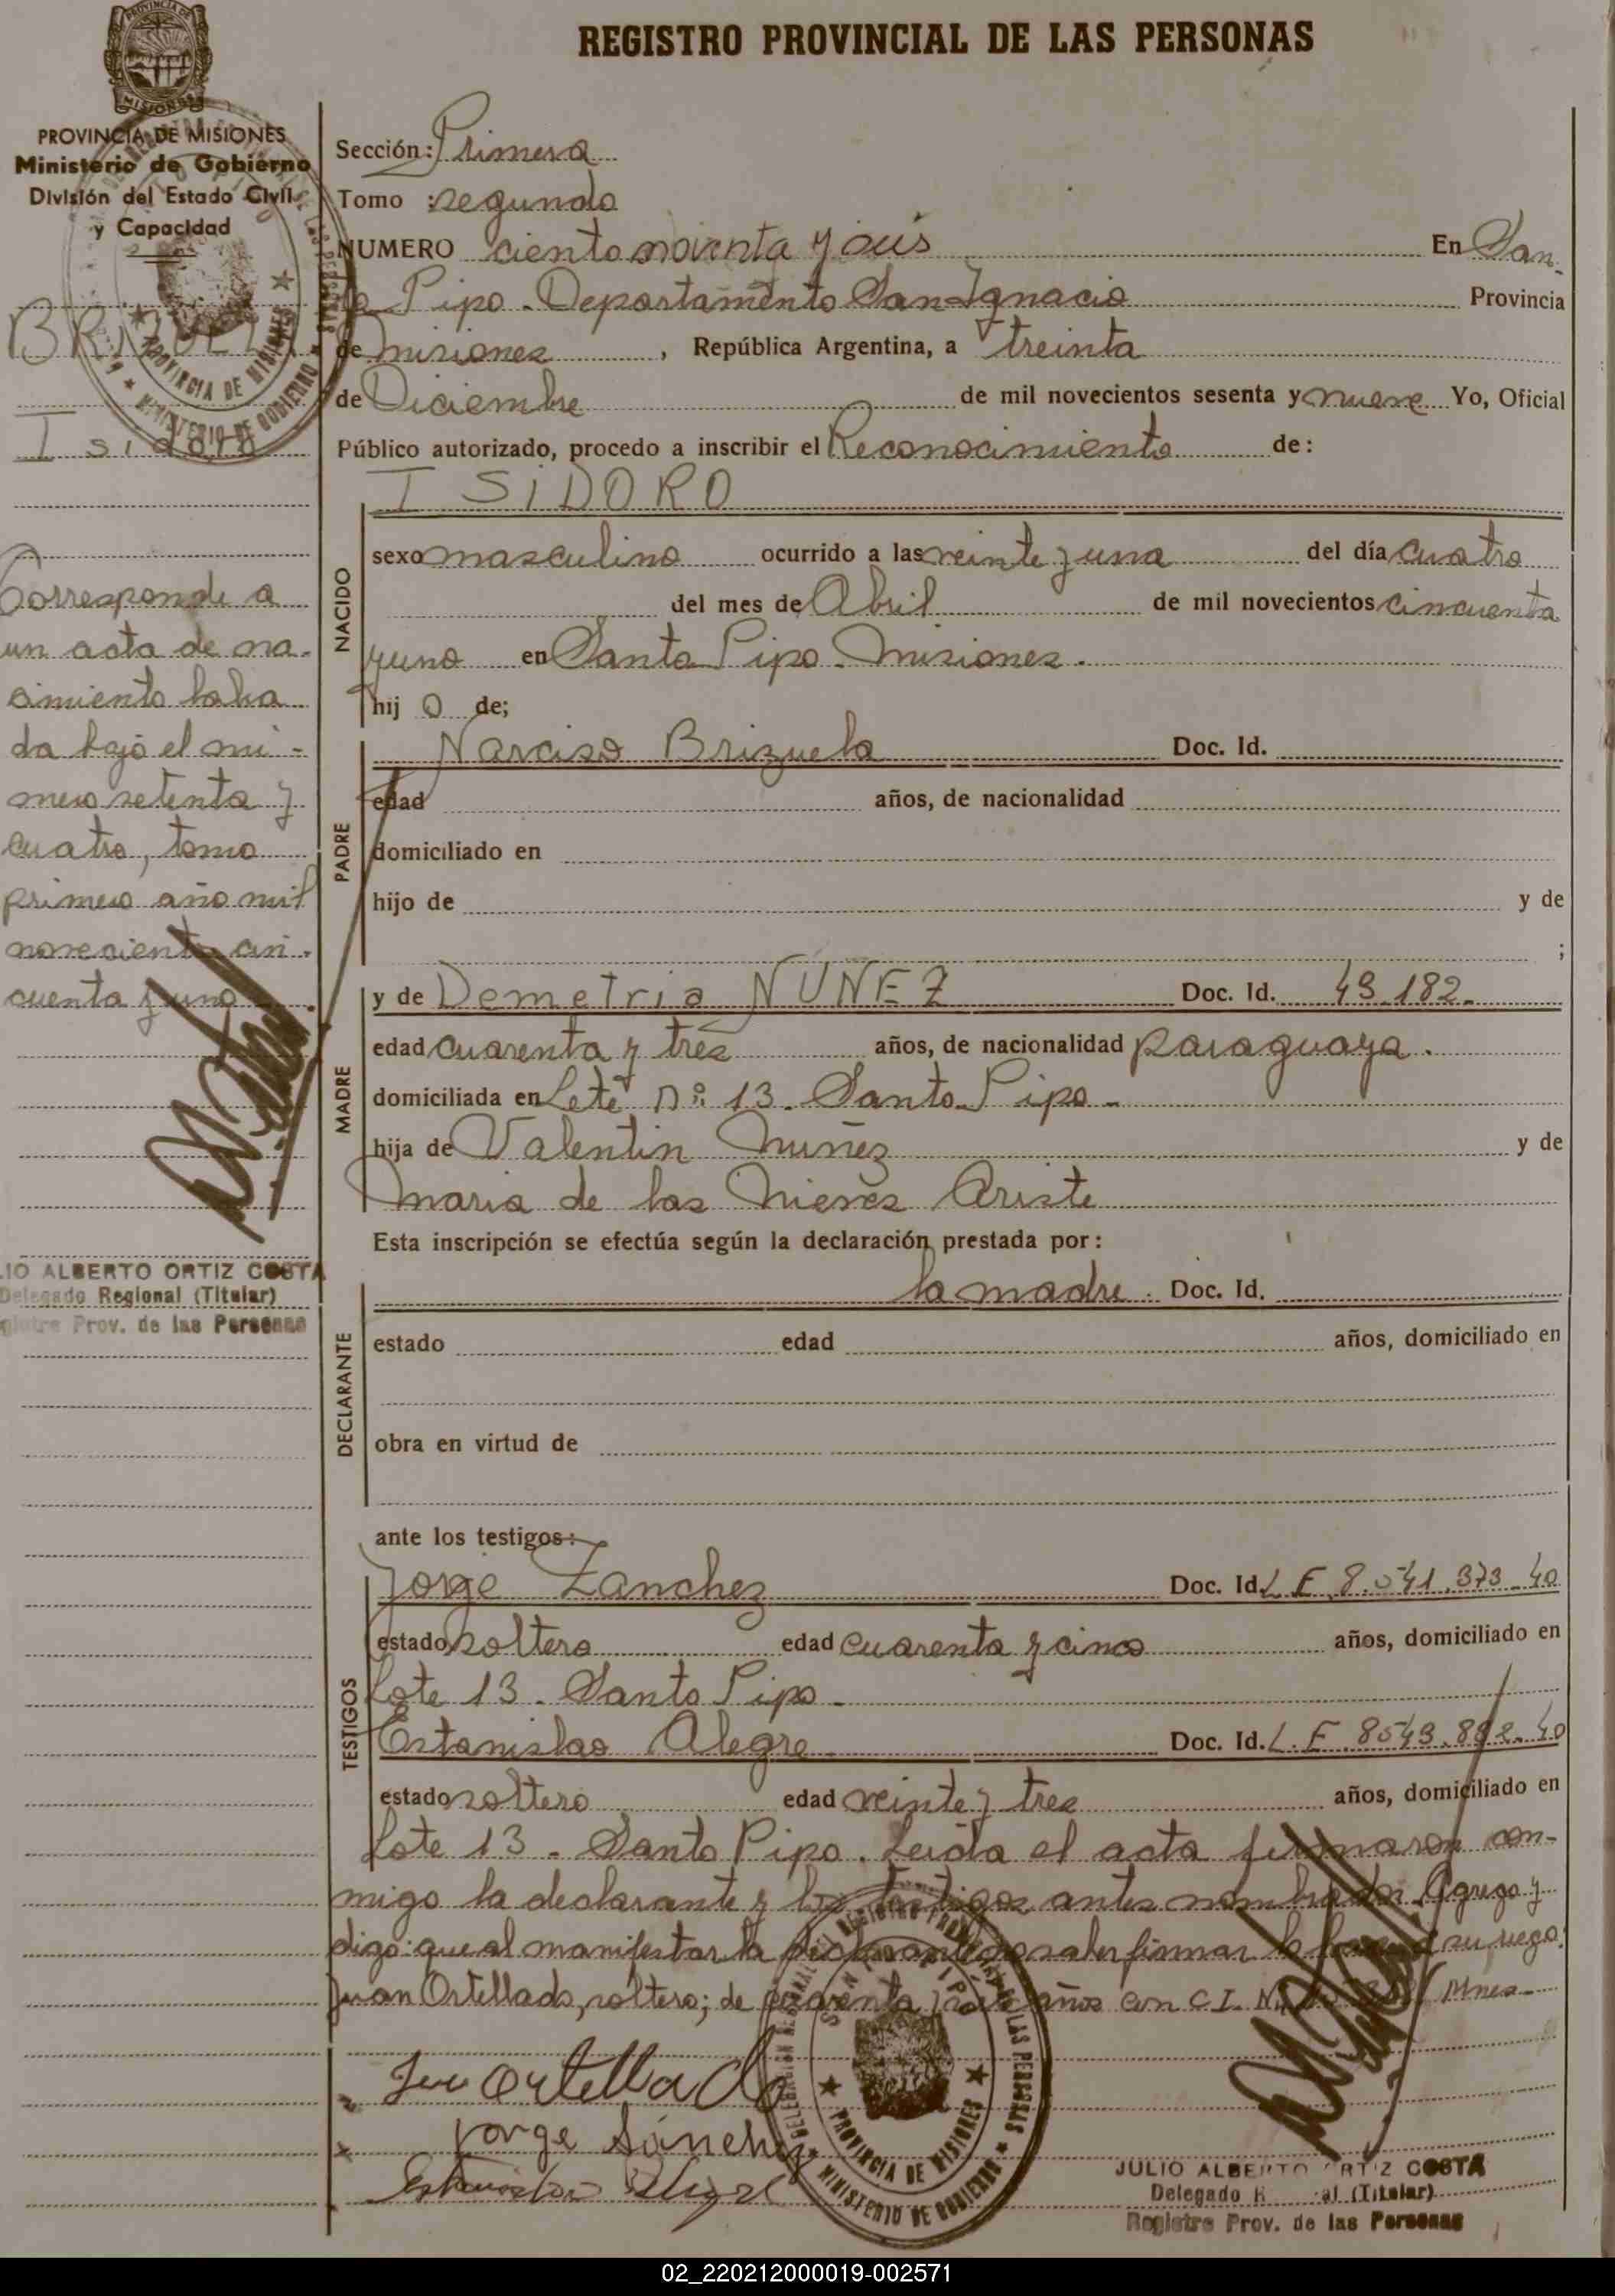 PROVINCIA DE
MISIONES
REGISTRO PROVINCIAL DE LAS PERSONAS
PROVINCIA DE MISIONES
Ministerio de Gobierno
División del Estado Civil
y Capacidad
BRIZUELA
Isidoro
Corresponde a
un acta de na-
cimiento laba
da bajo el nú-
mero setenta y
cuatro, tomo
primero año mil
novecientos cin-
cuenta y uno
JULIO ALBERTO ORTIZ COSTA
Delegado Regional (Titular)
Registro Prov. de las Personas
Sección: Primera
Tomo: segundo
NUMERO ciento noventa y seis En San-
to Pipo - Departamento San Ignacio Provincia
de Misiones, República Argentina, a treinta
de Diciembre de mil novecientos sesenta y nueve Yo, Oficial
Público autorizado, procedo a inscribir el Reconocimiento de:
ISIDORO
NACIDO
sexo masculino ocurrido a las veinte y una del día cuatro
del mes de Abril de mil novecientos cincuenta
y uno en Santo Pipo - Misiones.
hij o de;
PADRE
Narciso Brizuela Doc. Id.
edad años, de nacionalidad
domiciliado en
hijo de y de
;
MADRE
y de Demetria NUÑEZ Doc. Id. 49.182.
edad cuarenta y tres años, de nacionalidad paraguaya.
domiciliada en Lote Nº 13 - Santo Pipo -
hija de Valentin Nuñez y de
Maria de las Nieves Ariste
Esta inscripción se efectúa según la declaración prestada por:
DECLARANTE
la madre. Doc. Id.
estado edad años, domiciliado en
obra en virtud de
ante los testigos:
TESTIGOS
Jorge Zanchez Doc. Id. L E 8.541.373 - 40
estado soltero edad cuarenta y cinco años, domiciliado en
Lote 13 - Santo Pipo -
Estanislao Alegre Doc. Id. L. E. 8549.892 - 40
estado soltero edad veinte y tres años, domiciliado en
Lote 13 - Santo Pipo. Leída el acta firmaron con-
migo la declarante y los testigos antes nombrados. Agrego y
digo: que al manifestar la declarante no saber firmar lo hace a su ruego:
Juan Ortellado, soltero; de cuarenta años con C I. Nº Mnes-
Juan Ortellado
Jorge Sánchez
Estanislao Alegre
DELEGACION REGIONAL REGISTRO PROVINCIAL DE LAS PERSONAS
SANTO PIPÓ
PROVINCIA DE MISIONES
MINISTERIO DE GOBIERNO
JULIO ALBERTO ORTIZ COSTA
Delegado Regional (Titular)
Registro Prov. de las Personas
02_220212000019-002571